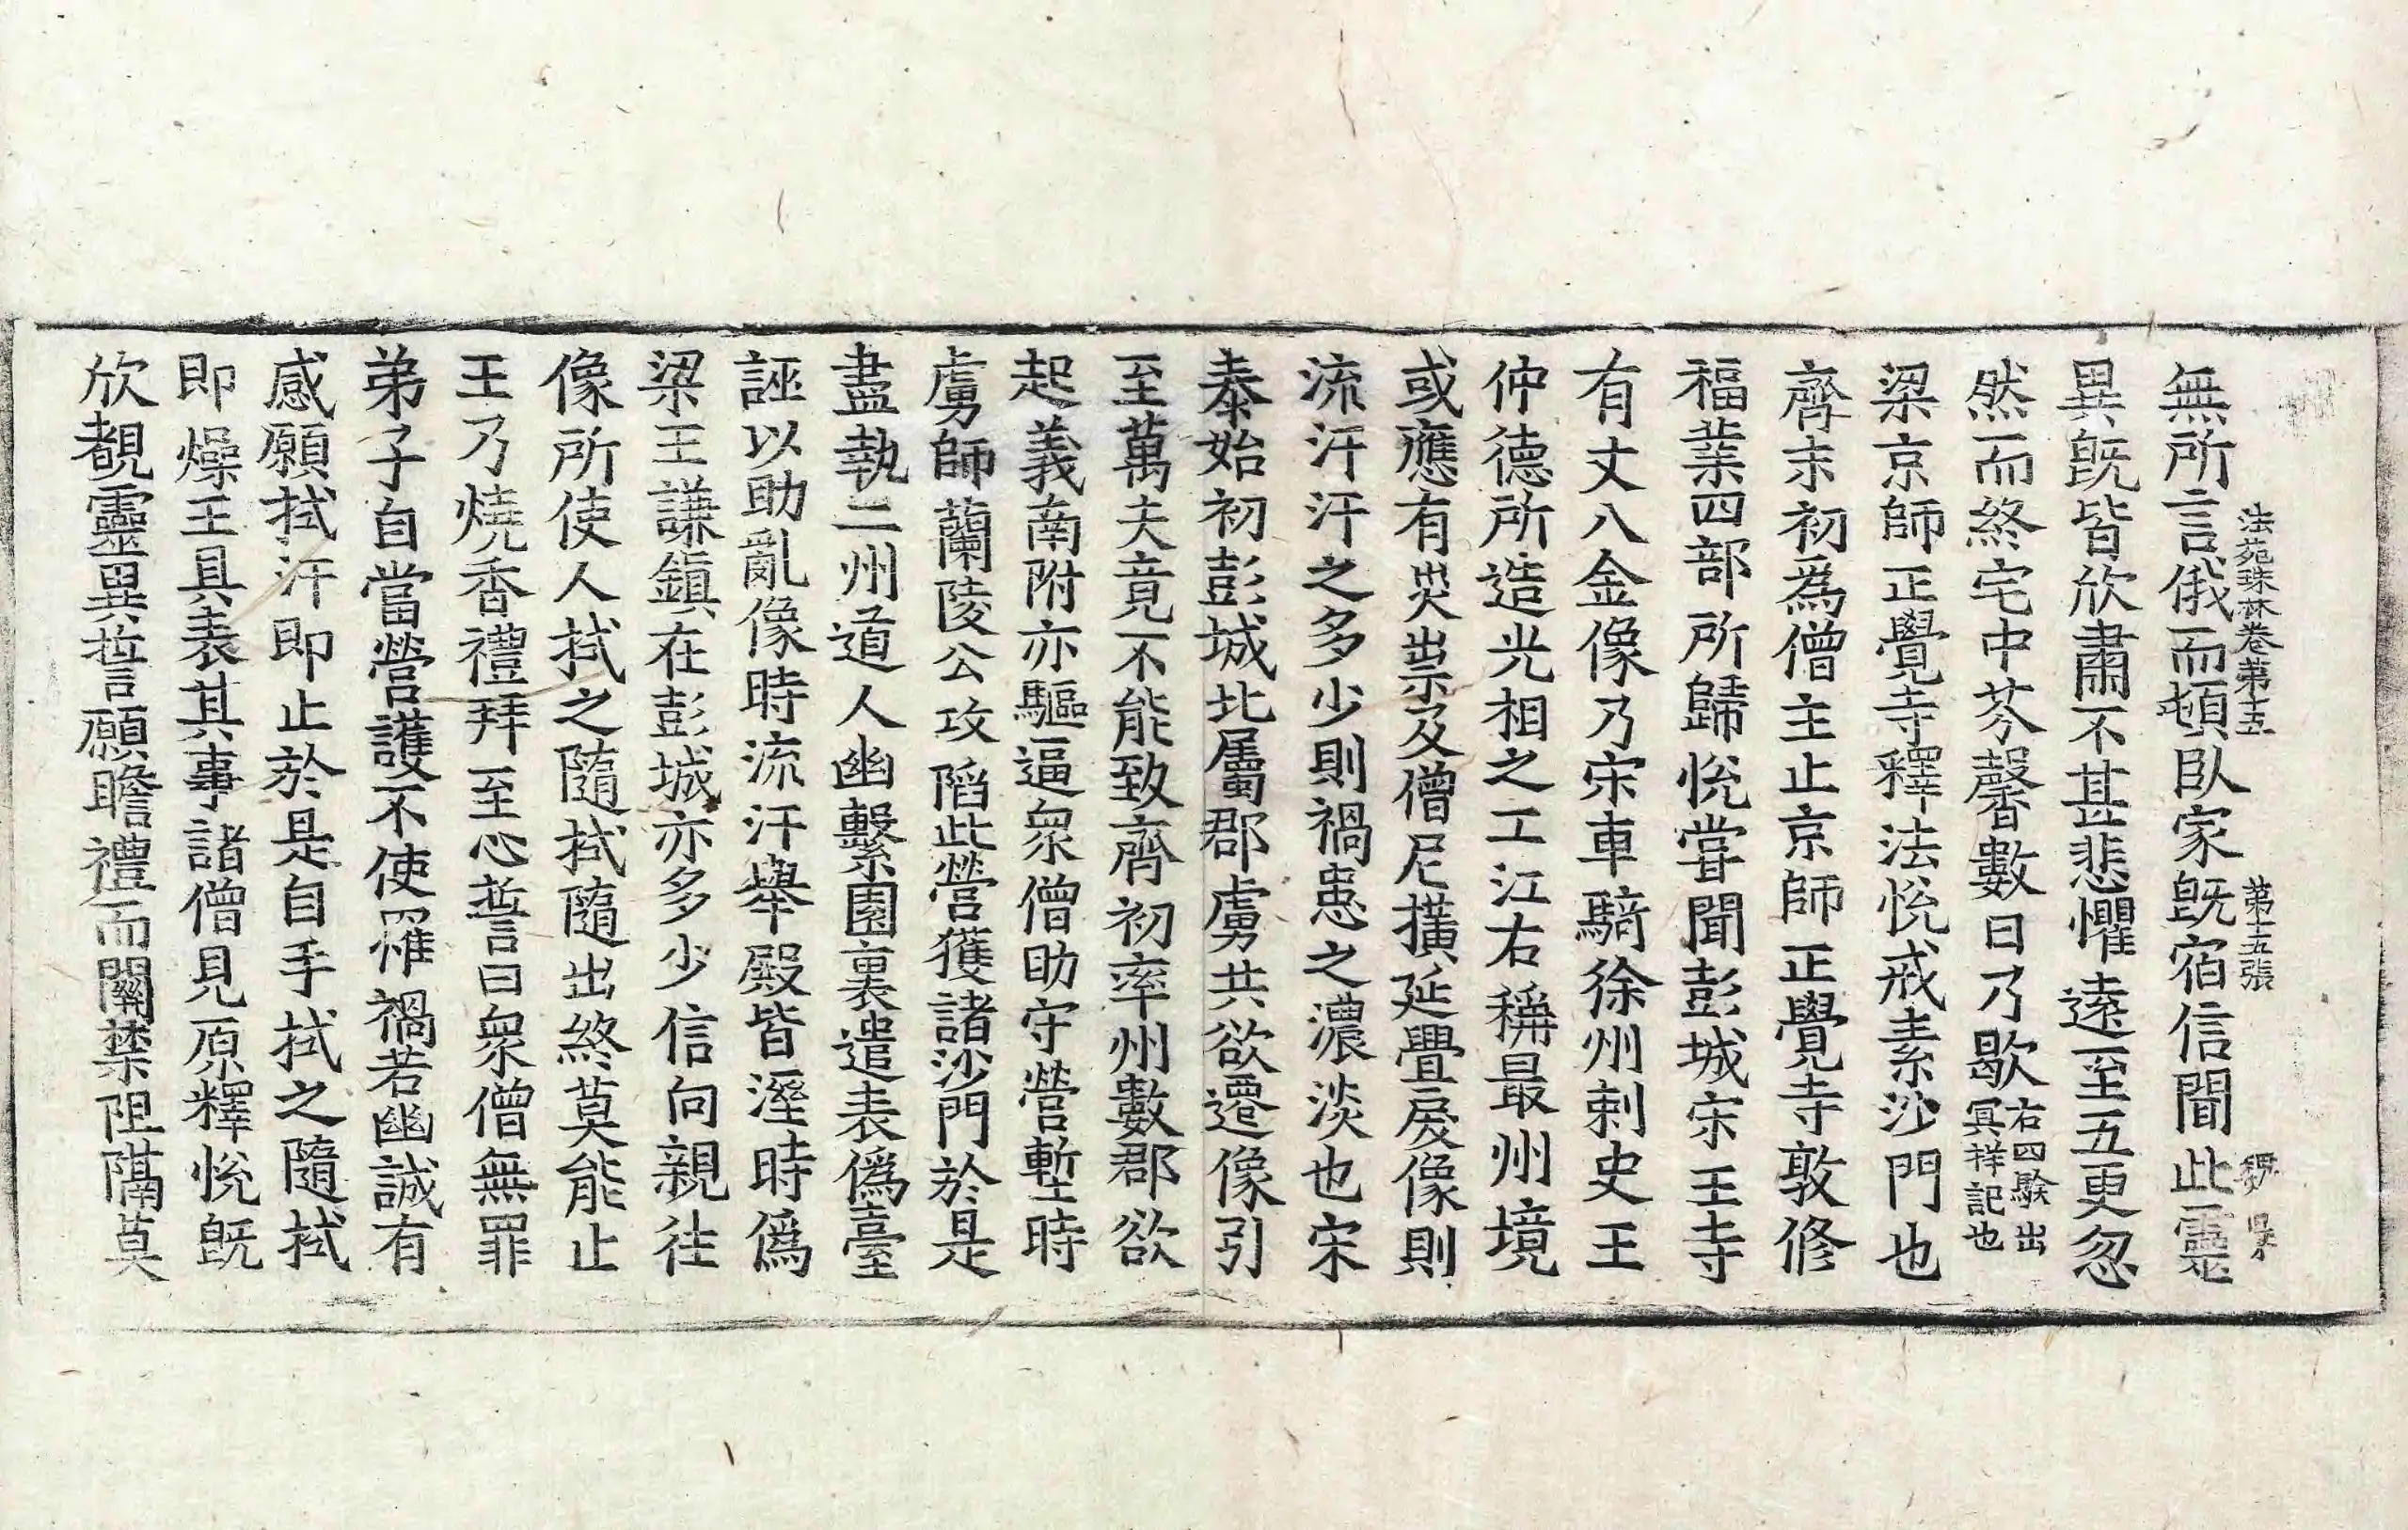 法苑珠林卷第十五 第十五張
無所言俄而頓臥家旣宿信聞此靈
異旣皆欣肅不甚悲懼遠至五更忽
然而終宅中芬馨數日乃歇右四驗出冥祥記也
梁京師正覺寺釋法悅戒素沙門也
齊末初爲僧主止京師正覺寺敦修
福業四部所歸悅甞聞彭城宋王寺
有丈八金像乃宋車騎徐州刺史王
仲德所造光相之工江右稱最州境
或應有灾祟及僧尼撗延舋戾像則
流汗汗之多少則禍患之濃淡也宋
泰始初彭城北屬郡虜共欲遷像引
至萬夫竟不能致齊初率州數郡欲
起義南附亦驅逼衆僧助守營塹時
虜師蘭陵公攻陷此營獲諸沙門於是
盡執二州道人幽繫園裏遣表僞臺
誣以助亂像時流汗擧殿皆溼時僞
梁王謙鎭在彭城亦多少信向親往
像所使人拭之隨拭隨出終莫能止
王乃燒香禮拜至心誓曰衆僧無罪
弟子自當營護不使罹禍若幽誠有
感願拭汗卽止於是自手拭之隨拭
卽燥王具表其事諸僧見原釋悅旣
欣覩靈異誓願瞻禮而關禁阻隔莫